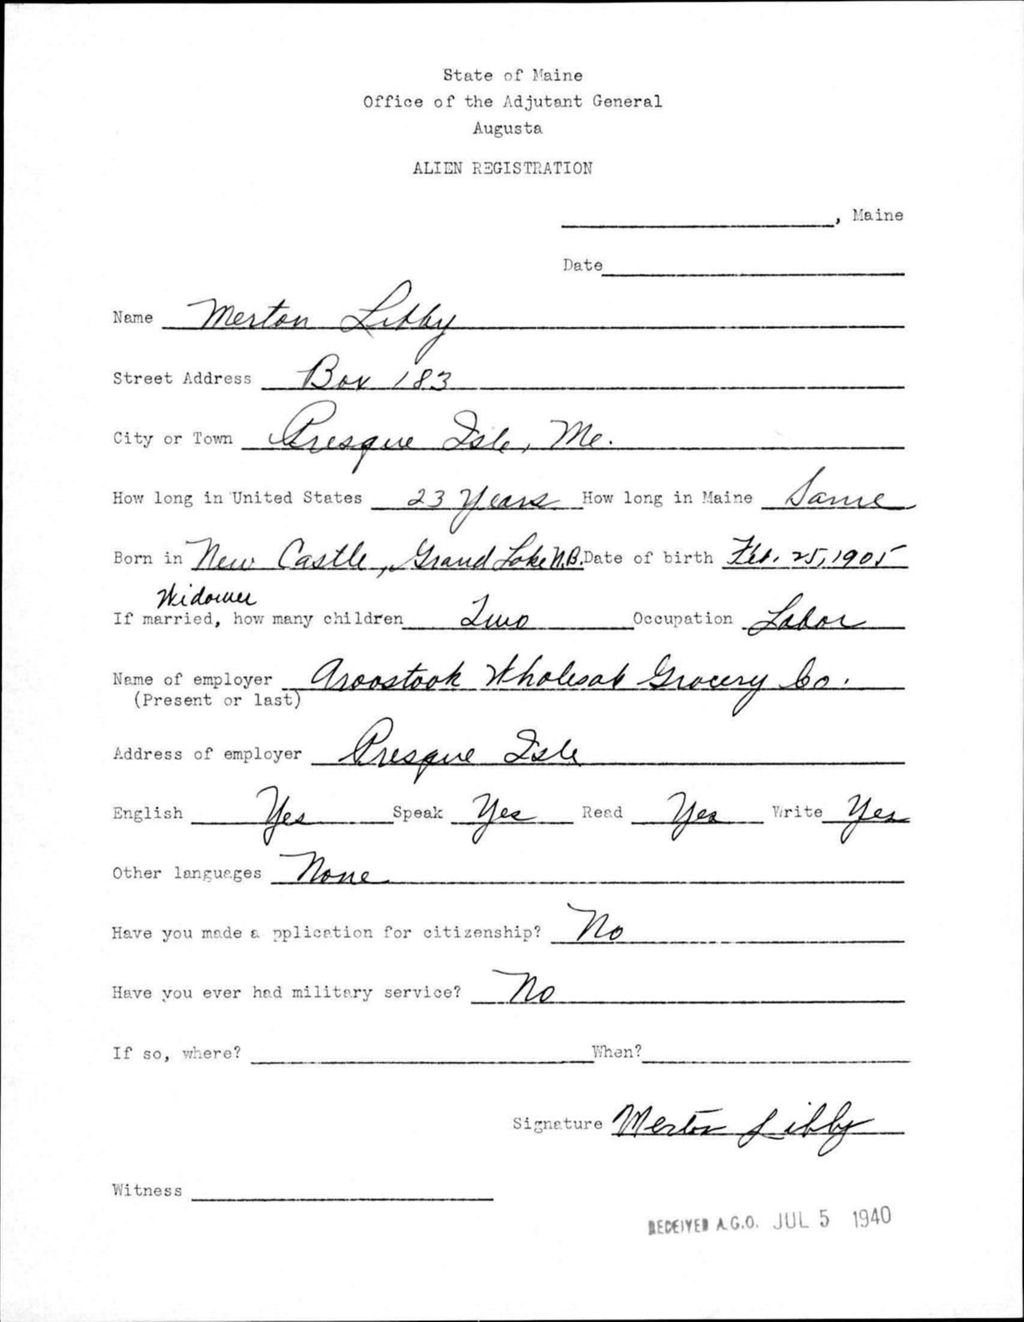 State of Maine
Office of the Adjutant General
Augusta
ALIEN REGISTRATION
, Maine
Date
Name Merton Libby
Street Address Box 183
City or Town Presque Isle, Me.
How long in United States 23 Years How long in Maine Same
Born in New Castle, Grand Lake N.B. Date of birth Feb. 25, 1905
Widower
If married, how many children Two Occupation Labor
Name of employer Aroostook Wholesale Grocery Co.
(Present or last)
Address of employer Presque Isle
English Yes Speak Yes Read Yes Write Yes
Other languages None
Have you made a pplication for citizenship? No
Have you ever had military service? No
If so, where? When?
Signature Merton Libby
Witness
RECEIVED A.G.O. JUL 5 1940